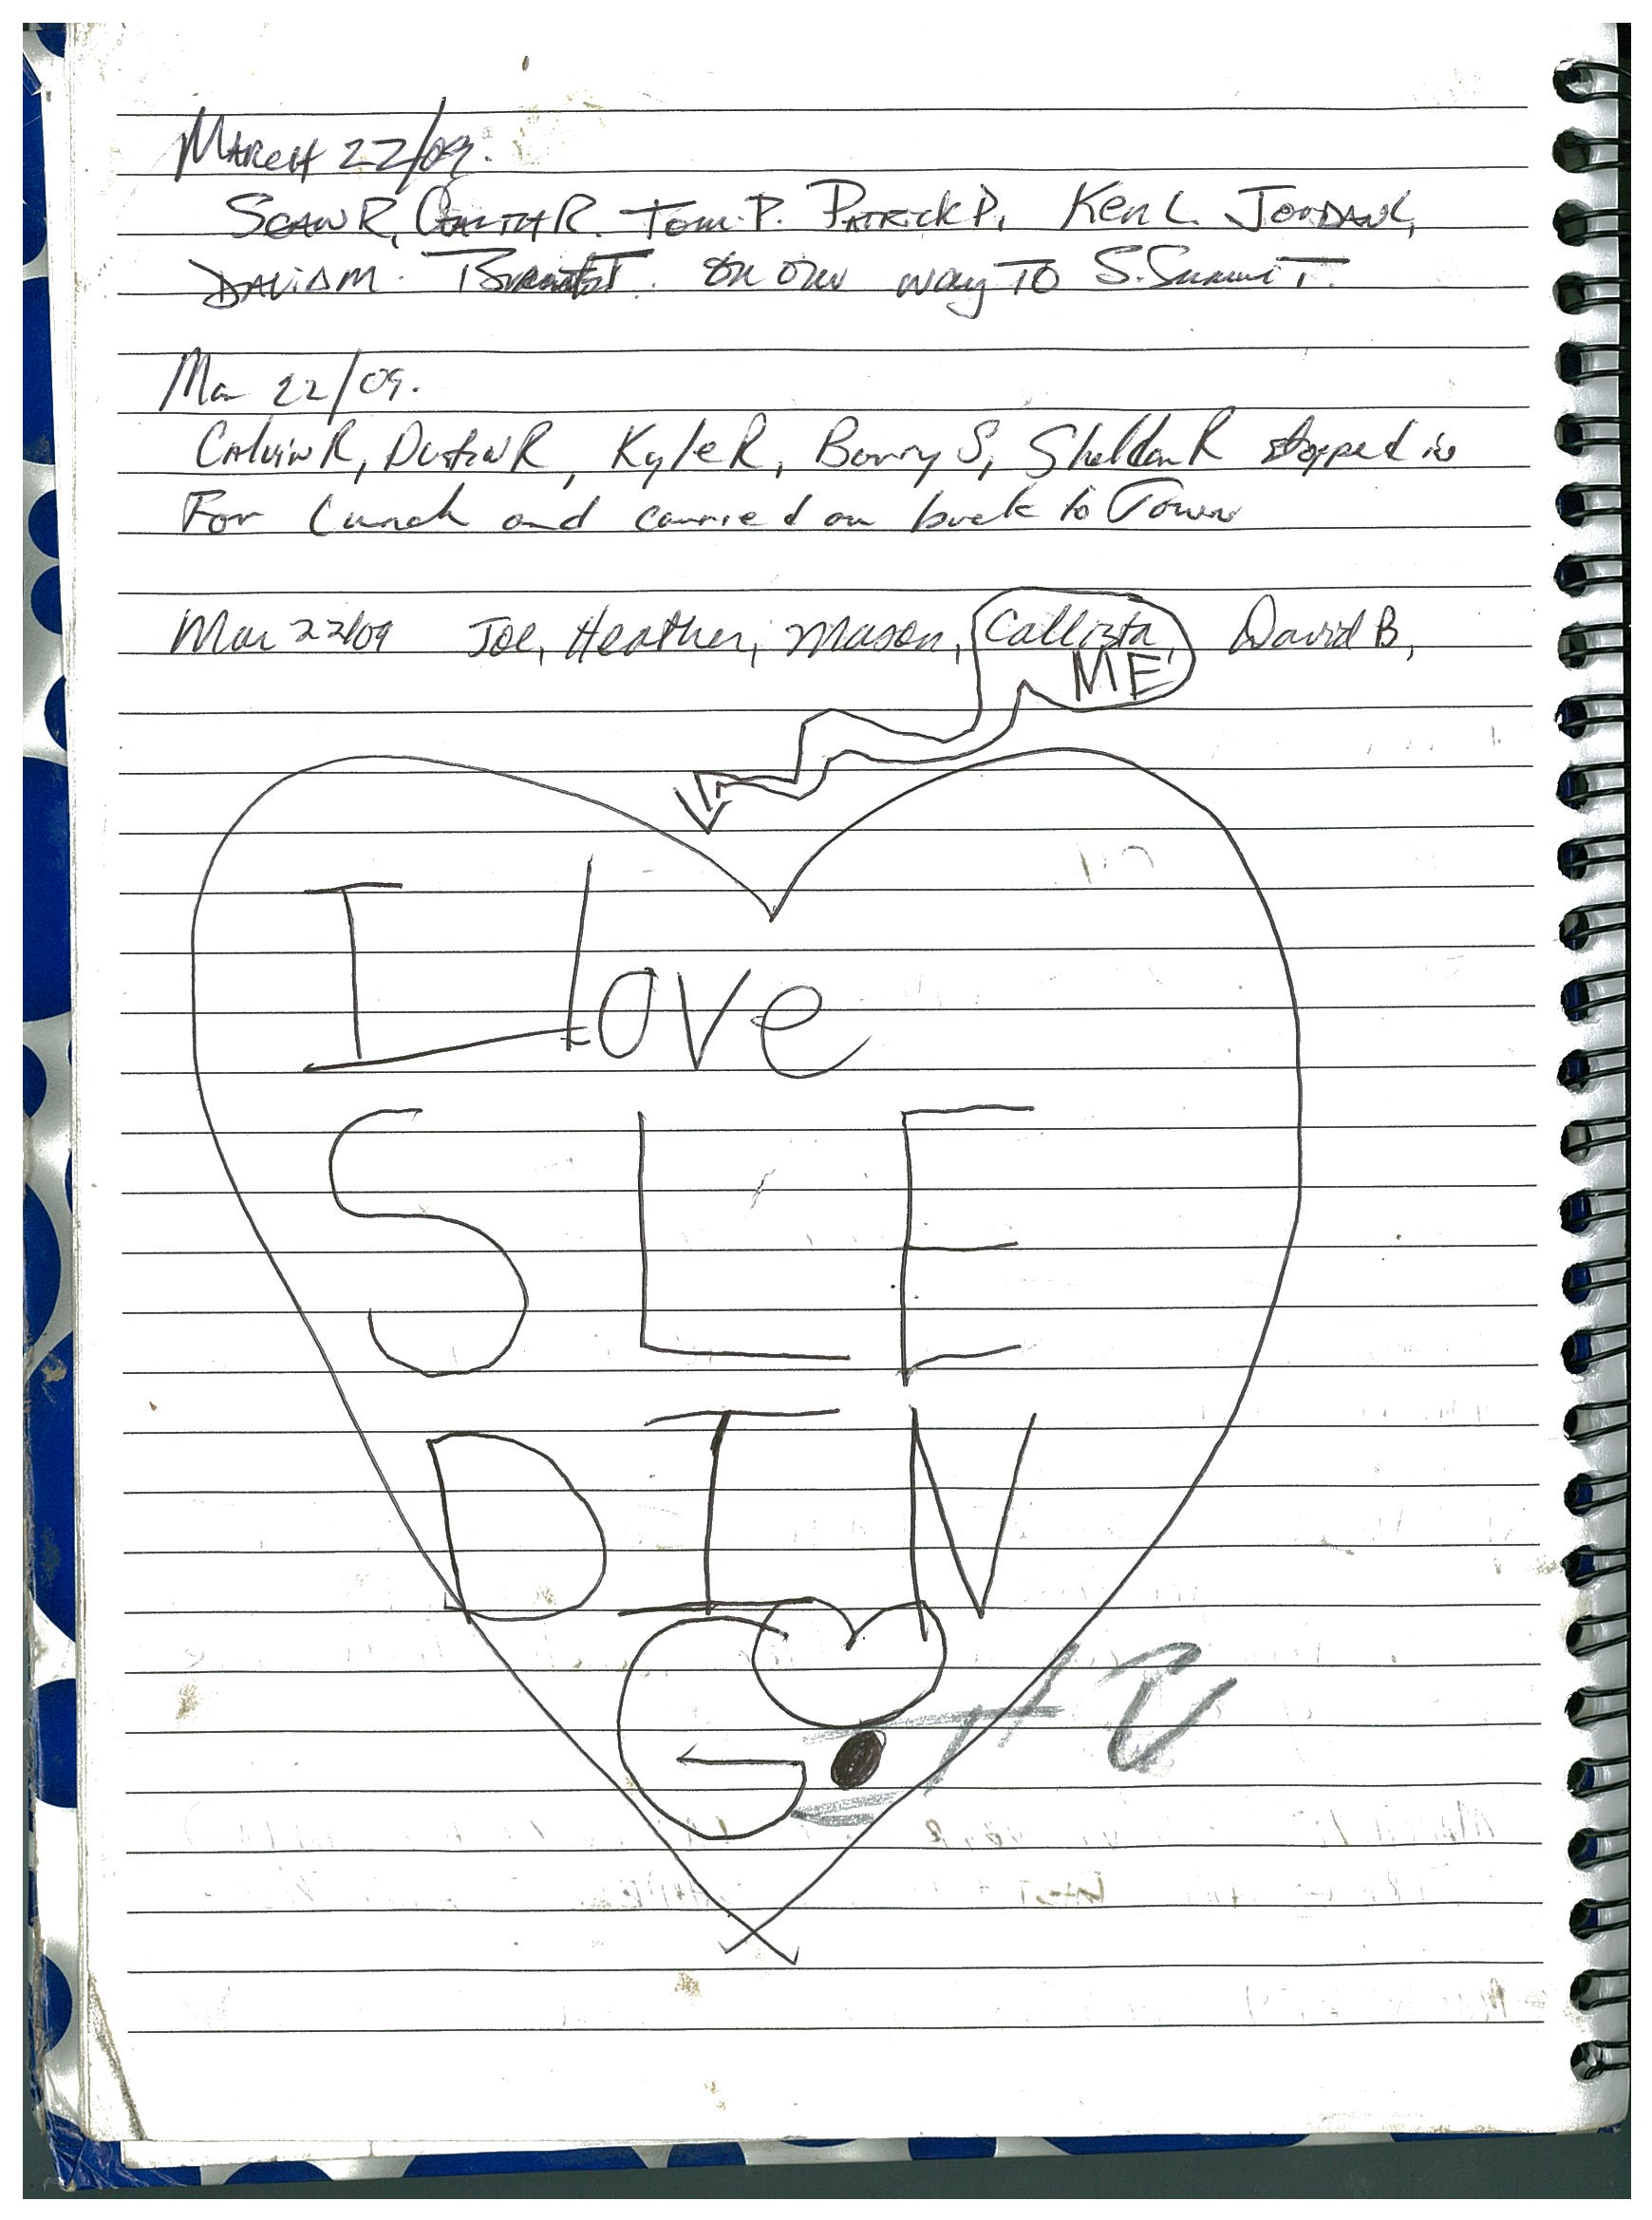 MARCH 22/09.
SEAN R, R. Tom P. PATRICK P, Ken L. JORDAN L,
DAVID M. on our way TO S. Summit.
Mar 22/09.
Calvin R, Dustin R, Kyle R, Barry S, Sheldon R stopped in
For Lunch and carried on back to Town
Mar 22/09 Joe, Heather, Mason, Callista, David B,
ME
I love
SLE
DIN
G